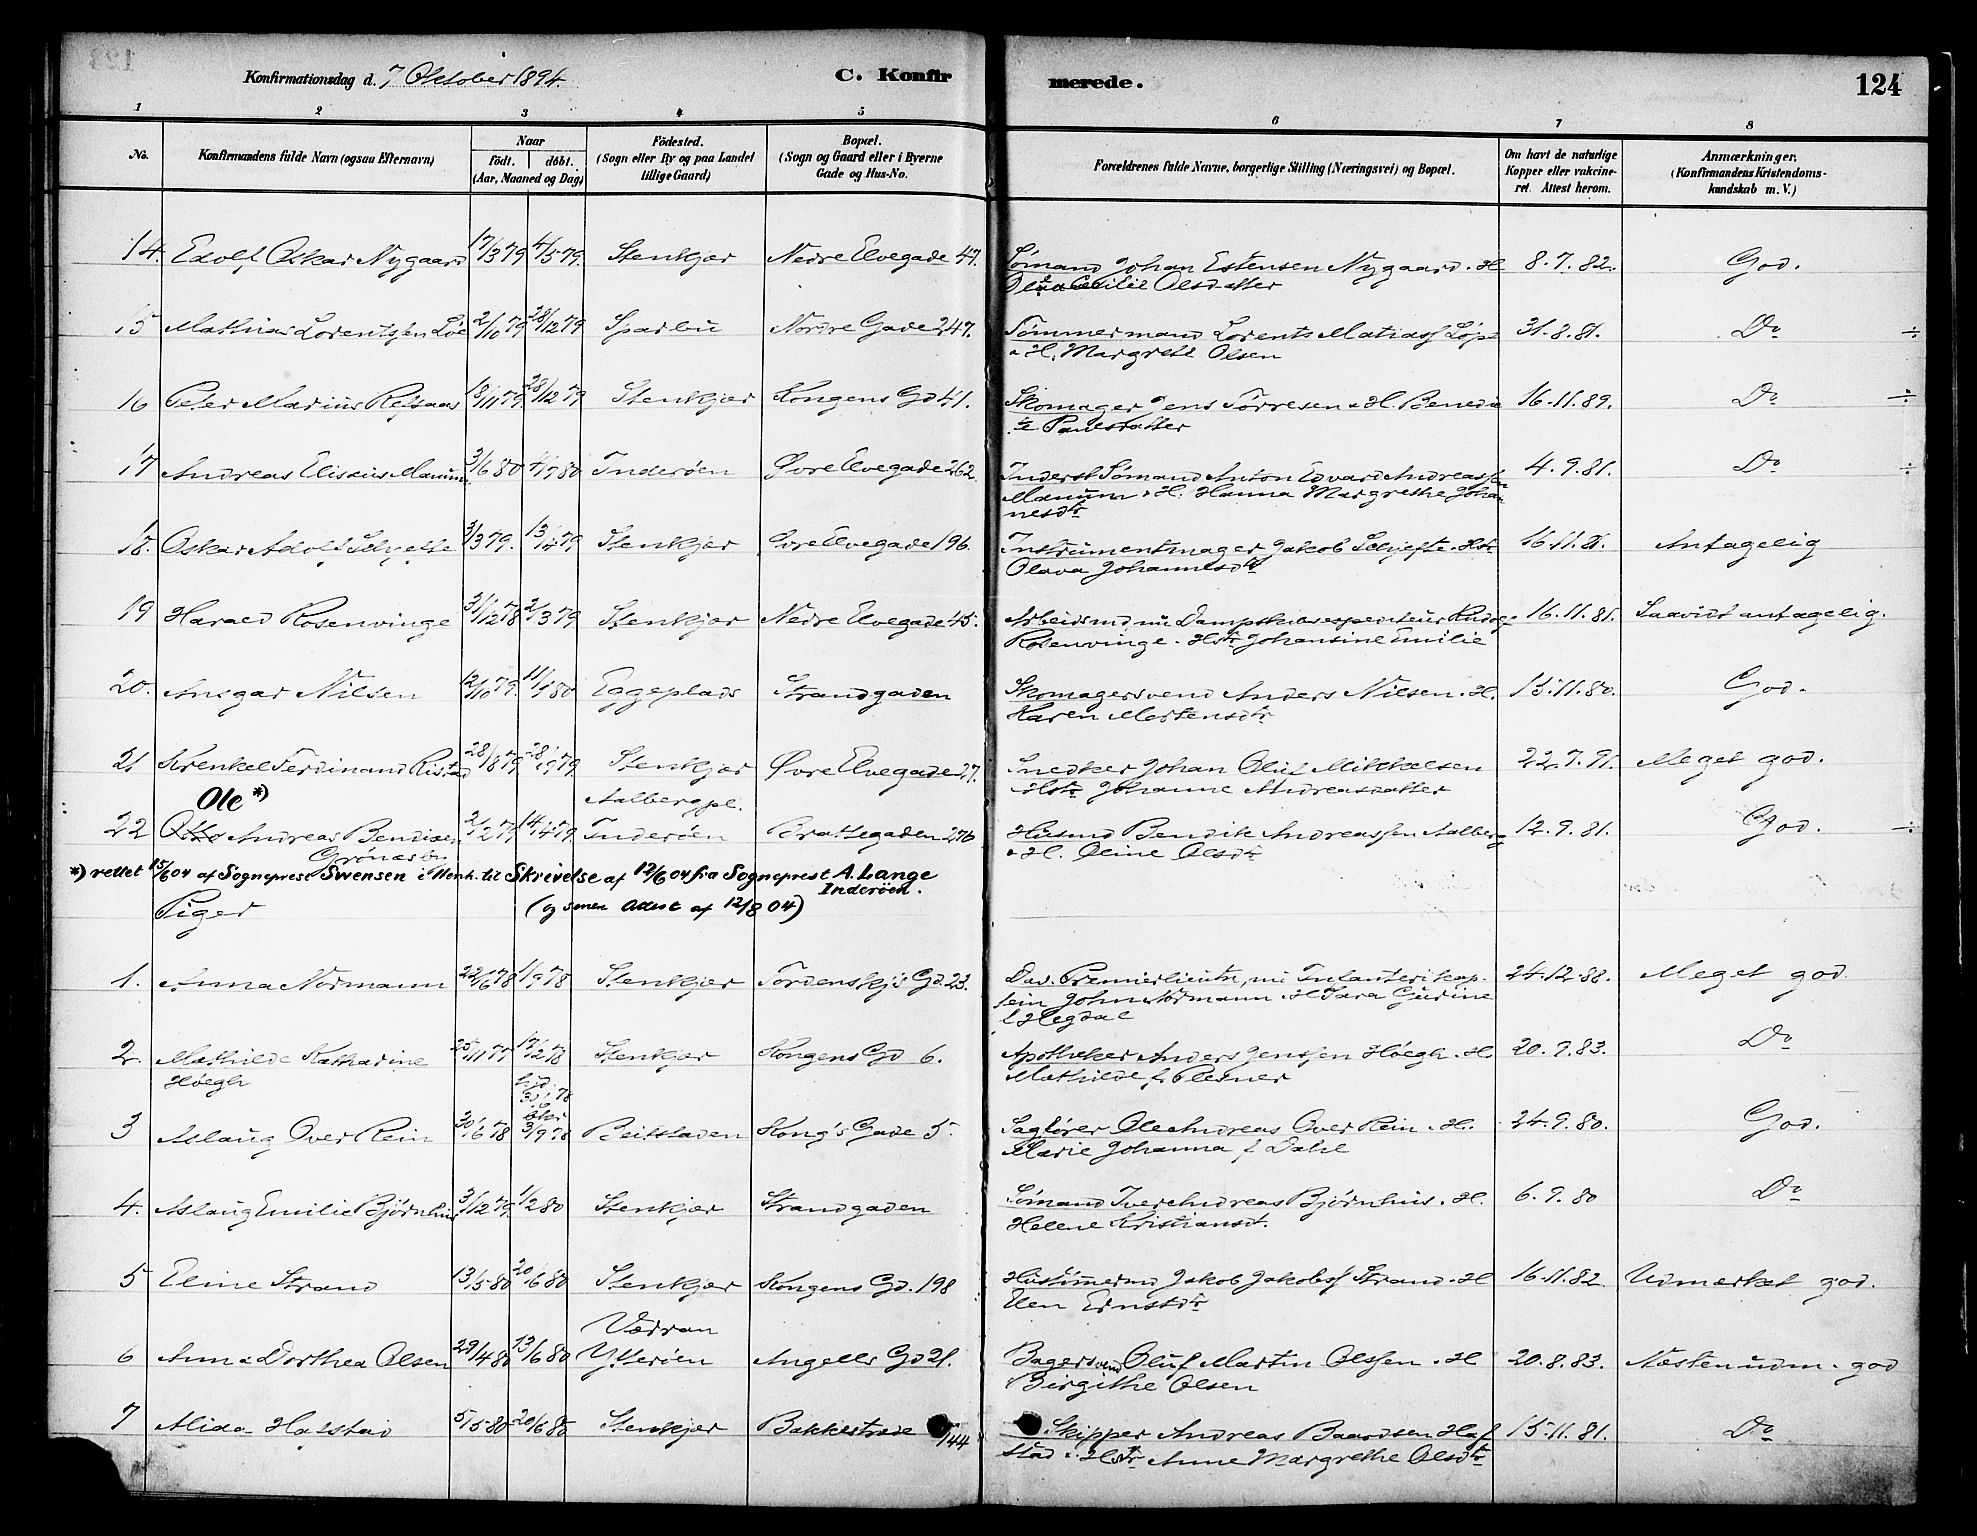 Konfirmationsdag d. 7 Oktober 1894. C. Konfirmerede. 124
1 2 3 4 5 6 7 8
No. Konfirmandens fulde Navn (ogsaa Efternavn) Naar født. døbt. (Aar, Maaned og Dag) Fødested. (Sogn eller By og paa Landet tillige Gaard) Bopæl. (Sogn og Gaard eller i Byerne Gade og Hus-No. Forældrenes fulde Navne, borgerlige Stilling (Næringsvei) og Bopæl. Om havt de naturlige Kopper eller vakcineret. Attest herom. Anmærkninger. (Konfirmandens Kristendomskundskab m. V.)
14. Edolf Oskar Nygaard 17/3 79 4/5 79. Stenkjær Nedre Elvegade 47. Sømand Johan Estensen Nygaard. H 8.7.82. God.
Olsdatter
15 Mathias Lorentssen Løe 2/10 79 28/12 79 Sparbu Nordre Gade 247. Tømmermand Lorents Matiass 31.8.81. Do ÷
& H. Margrete Olsen
16 Peter Marius Refsaas 18/11 79. 28/12 79 Stenkjær Kongens Gd 41. Skomager Jens Tørresen & H. Benedic 16.11.89. Do ÷
te Paulsdatter
17 Andreas Elisæus Manum 3/6 80 4/7 80 Inderøen Øvre Elvegade 262. Inderst Sømand Anton Edvard Andreassen 4.9.81. Do ÷
Manum & H. Hanna Margrethe Johan
nesdtr
18. Oskar Adolf Schjefte 3/3 79. 13/4 79 Stenkjær Øvre Elvegade 196. Instrumentmager Jakob Schjefte. Hstr 16.11.81. Antagelig
Olava Johannesdtr
19 Harald Rosenvinge 31/12 78 2/3 79 Stenkjær Nedre Elvegade 45. Arbeidsmd nu Dampskibsexpediteur Rudolf 16.11.81. Saavidt antagelig.
Rosenvinge. Hstr Johansine Emilie
20. Ansgar Nilsen 12/10 79. 11/1 80 Eggeplads Strandgaden Skomagersvend Anders Nilsen. H. 15.11.80. God.
Karen Mortensdtr
21 Krenkel Ferdinand Ristad 28/8 79 Stenkjær Øvre Elvegade 27. Snedker Johan Oluf Mikkelsen 22.7.91. Meget god.
Hstr Johanne Andreasdatter
Ole *) Aalberg pl.
22 Andreas Bendixen 2/2 79 14/4 79 Inderøen Brattegaden 276 Husmd Bendik Andreassen Aalberg 12.9.81. God. ÷
Grønæs & H. Oline Olsdtr
*) rettet 15/6 04 af Sogneprest Swensen i Henh. til Skrivelse af 12/6 04 fra Sogneprest A. Lange
Inderøen.
Piger (og senere Attest af 12/8 04)
1. Anna Normann 22/6 78 1/9 78 Stenkjær Tordenskj's Gd. 23. Dav. Premierlieutn, nu Infanterikap- 24.12.88. Meget god
tein John Normann. H Sara Gurine
f Hegdal
2. Mathilde Katharine 25/11 77 17/2 78 Stenkjær Kongens Gd 6. Apotheker Anders Jenssen Høegh. H. 20.9.83. Do
Høegh Mathilde f. Plesner
hjd. 30/6 78
3 Aslaug Over Rein 30/6 78 3/9 78 Beitstaden Kong's Gade 5. Sagfører Ole Andreas Over Rein. H. 24.9.80. God.
Marie Johanna f Dahl
4. Aslaug Emilie Bjørnhus 3/12 79. 1/2 80 Stenkjær Strandgaden Sømand Iver Andreas Bjørnhus. H. 6.9.80 Do
Helene Kristiansd.
5 Eline Strand 13/5 80 20/6 80 Stenkjær Kongens Gd. 198 Hustømmermd Jakob Jakobss Strand. H 16.11.82 Udmærket god.
Elen Ernstdtr
Vædran
6 Anna Dorthea Olsen 29/4 80 13/6 80 Ytterøen Angells Gd 21. Bagersvend Oluf Martin Olssen. H 20.8.83. Næsten udm. god
Birgithe Olsen
7 Alida Hafstad 5/5 80 20/6 80 Stenkjær Bakkestræde 144 Skipper Andreas Baardsen Haf 15.11.81. Do
stad. Hstr Anne Margrethe Olsdtr